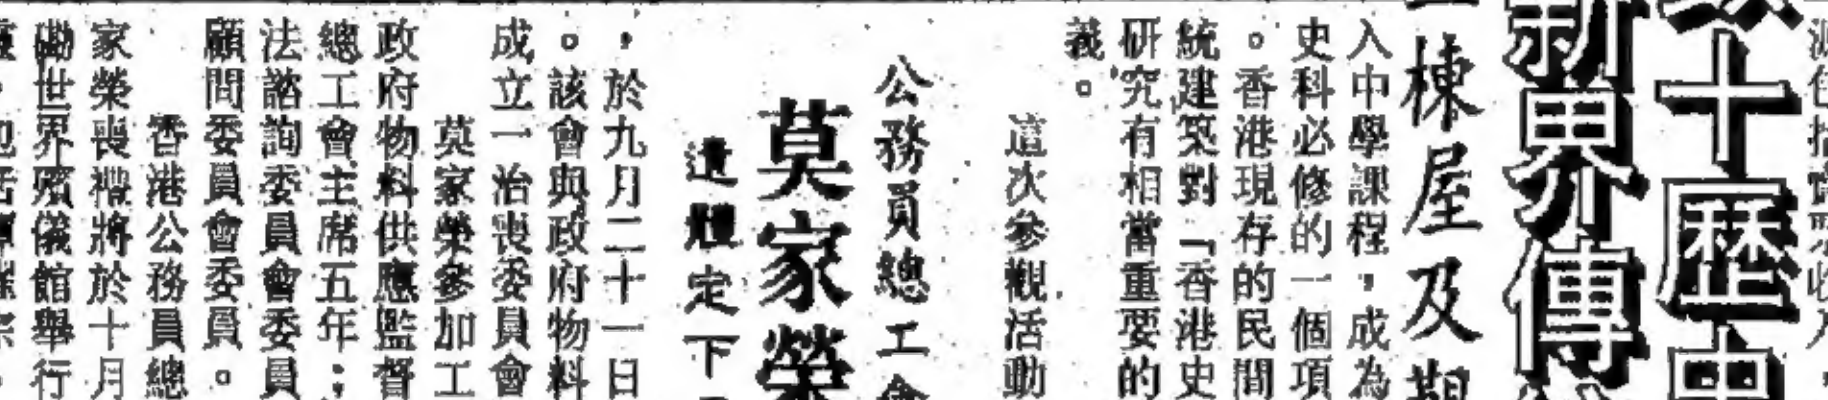 十歷史
新界傳
棟屋及
入中學課程，成為
史科必修的一個項
。香港現存的民間
統建築對「香港史
研究有相當重要的
義。
這次參觀活動
公務員總工會
莫家榮
遺體定下
，於九月二十一日
。該會與政府物料
成立一治喪委員會
莫家榮參加工
政府物料供應監督
總工會主席五年；
法諮詢委員會委員
顧問委員會委員。
香港公務員總
家榮喪禮將於十月
勵世界殯儀館舉行